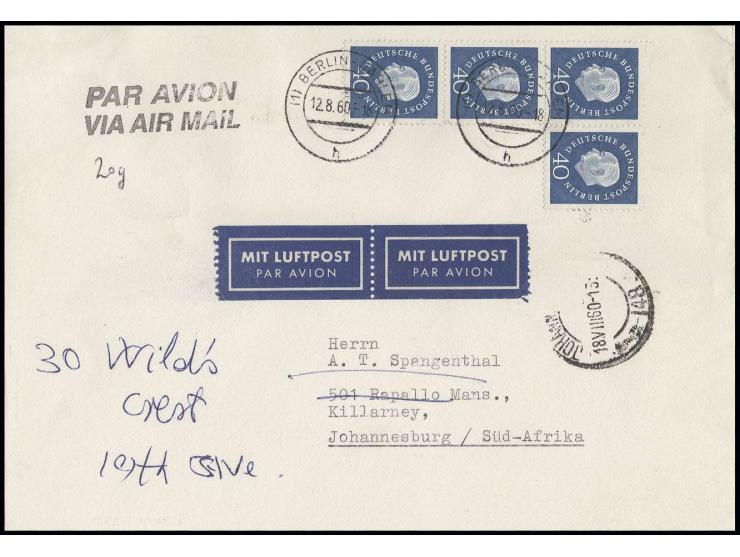 PAR AVION
VIA AIR MAIL
20g
(1) BERLIN
12.8.60-18
h
h
40 DEUTSCHE BUNDESPOST BERLIN
40 DEUTSCHE BUNDESPOST BERLIN
40 DEUTSCHE BUNDESPOST BERLIN
40 DEUTSCHE BUNDESPOST BERLIN
MIT LUFTPOST
PAR AVION
MIT LUFTPOST
PAR AVION
18VIII60-13
Herrn
A. T. Spangenthal
501 Rapallo Mans.,
Killarney,
Johannesburg / Süd-Afrika
30 Wild's
Crest